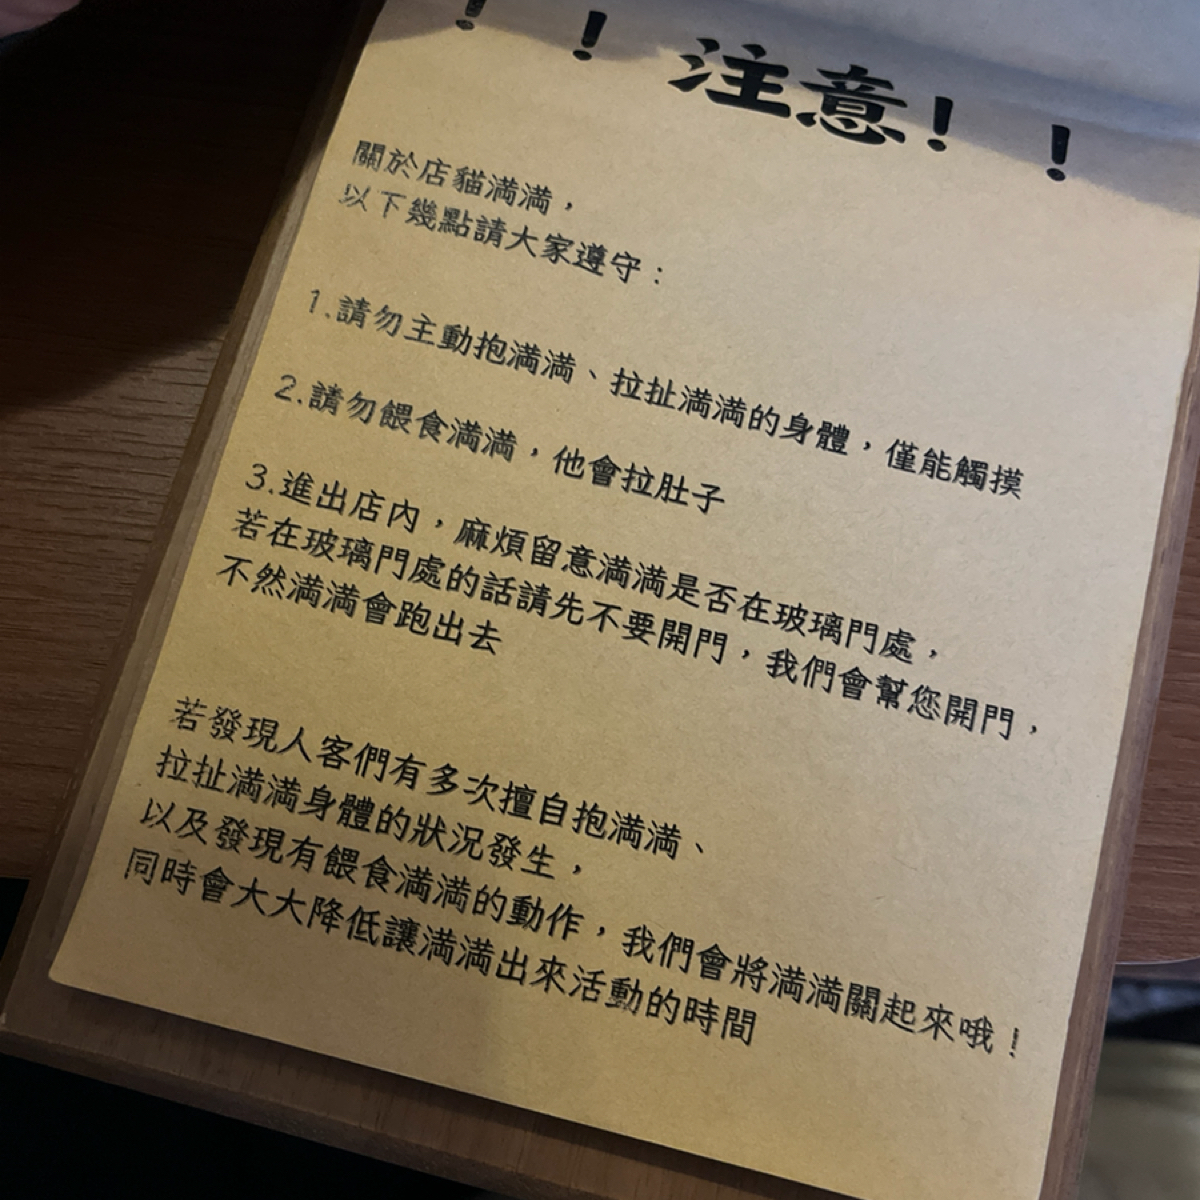 ！！注意！！
關於店貓満満，
以下幾點請大家遵守：
1.請勿主動抱満満、拉扯満満的身體，僅能觸摸
2.請勿餵食満満，他會拉肚子
3.進出店內，麻煩留意満満是否在玻璃門處，
若在玻璃門處的話請先不要開門，我們會幫您開門，
不然満満會跑出去
若發現人客們有多次擅自抱満満、
拉扯満満身體的狀況發生，
以及發現有餵食満満的動作，我們會將満満關起來哦！
同時會大大降低讓満満出來活動的時間